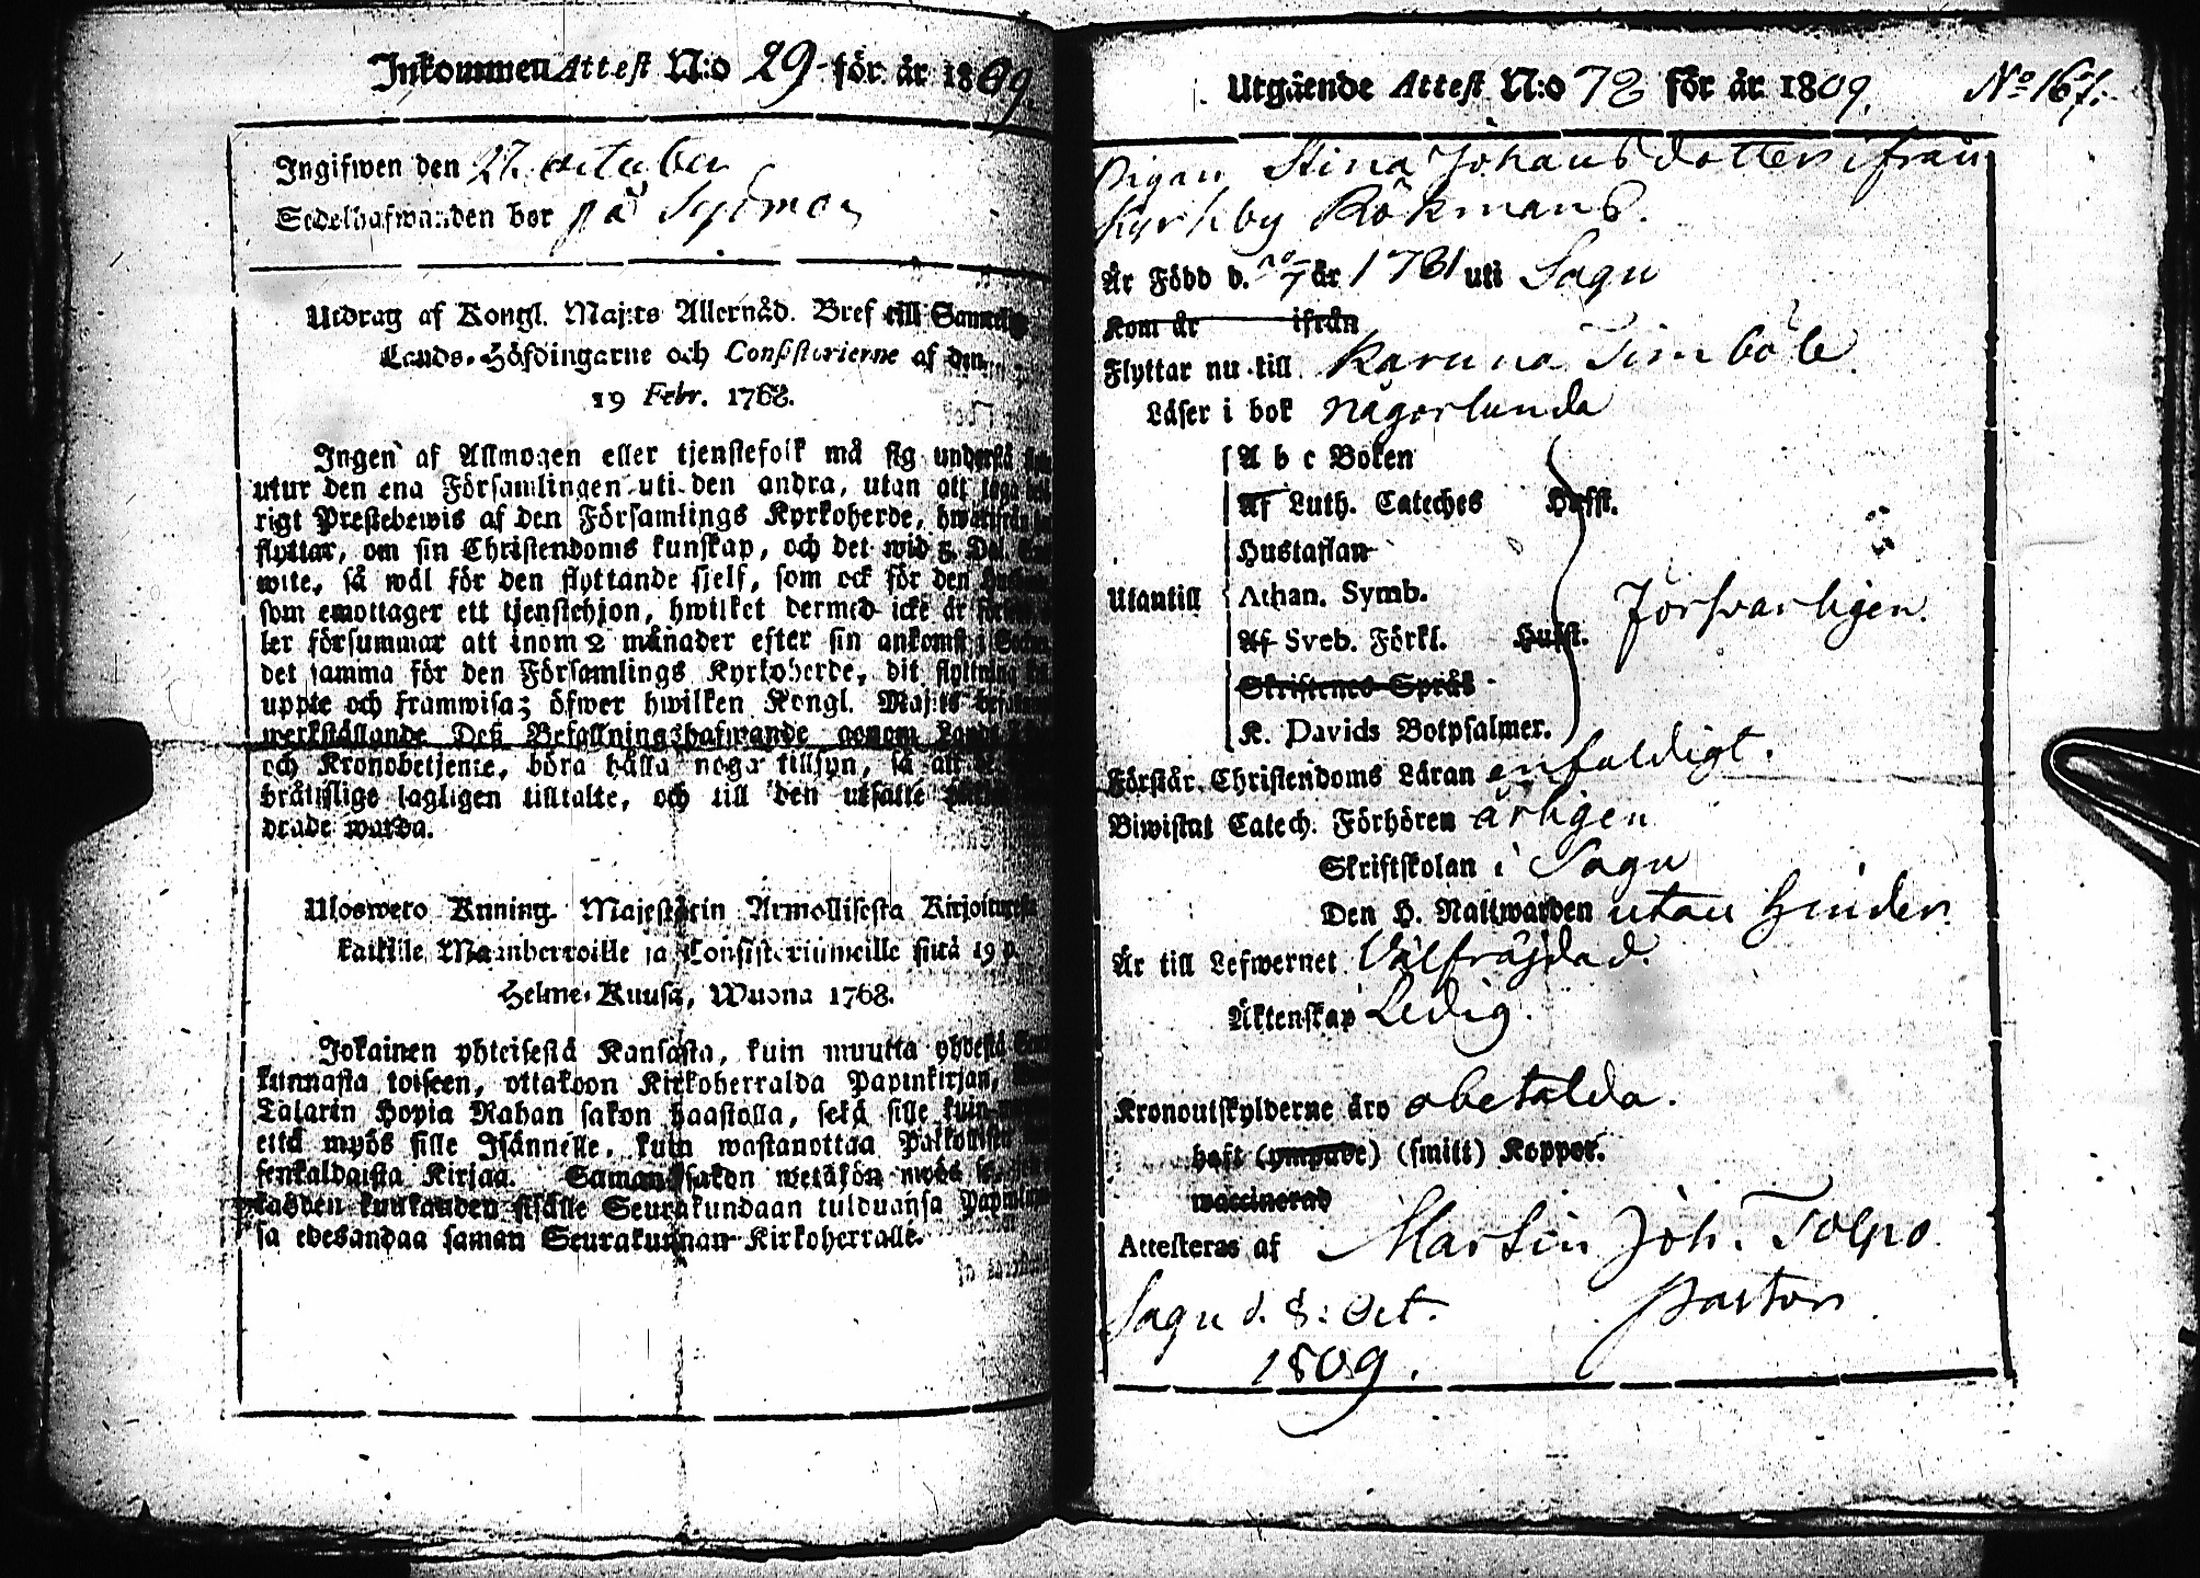 Inkommen Attest N:o 29 för år 1809.
Ingifwen den 27. october
Sedelhafwanden bor på
Utdrag af Kongl. Maj:ts Allernåd. Bref till
Lands-Höfdingarne och Consistorierne af den
19 Febr. 1768.
Ingen af Allmogen eller tjenstefolk må sig understå
utur den ena Församlingen uti den andra, utan att taga
rigt Prestebewis af den Församlings Kyrkoherde,
flyttar, om sin Christendoms kunskap, och det wid 5. Dal.
wite, så wäl för den flyttande sjelf, som ock för den
som emottager ett tjenstehjon, hwilket dermed icke är
ler försummar att inom 2 månader efter sin ankomst i
det samma för den Församlings Kyrkoherde, dit flyttning
uppte och framwisa; öfwer hwilken Kongl. Maj:ts
werkställande Deß Befallningshafwande genom
och Kronobetjente, böra hålla noga tillsyn, så att
bråttslige lagligen tilltalte, och till den utsatte
drade warda.
Ulosweto Kuning. Majestätin Armollisesta
kaikille Maanherroille ja Consistoriumeille siitä 19 p.
Helme-Kuusa, Wuona 1768.
Jokainen yhteisestä Kansasta, kuin muutta yhdestä
kunnasta toiseen, ottakoon Kirkoherralda Papinkirjan,
Talarin Hopia Rahan sakon haastolla, sekä sille kuin
että myös sille Isännelle, kuin wastanottaa
senkaldaista Kirjaa. Saman sakon wetäkön myös
kahden kuukauden sisälle Seurakundaan tulduansa
sa edesandaa saman Seurakunnan Kirkoherralle.
Utgående Attest N:o 72 för år 1809. No 167.
Pigan Stina Johansdotter ifrån
Kyrkby Rökmans.
Är Född d. 20/7 år 1781 uti Sagu
Kom år ifrån
Flyttar nu till Karuna Timböle
Läser i bok någorlunda
A b c Boken
Af Luth. Cateches Hufst.
Hustaflan
Utantill Athan. Symb. Försvarligen.
Af Sveb. Förkl. Hufst.
Skriftenes Språk
K. Davids Botpsalmer.
Förstår Christendoms Läran enfaldigt.
Biwistat Catech. Förhören årligen
Skriftskolan i Sagu
Den H. Nattwarden utan hinder
Är till Lefwernet Välfräjdad.
Äktenskap Ledig.
Kronoutskylderne äro obetalda.
haft (ympade) (smitt) Koppor.
waccinerad
Attesteras af Martin Joh. Tolpo
Sagu d. 8: Oct. Pastor.
1809.